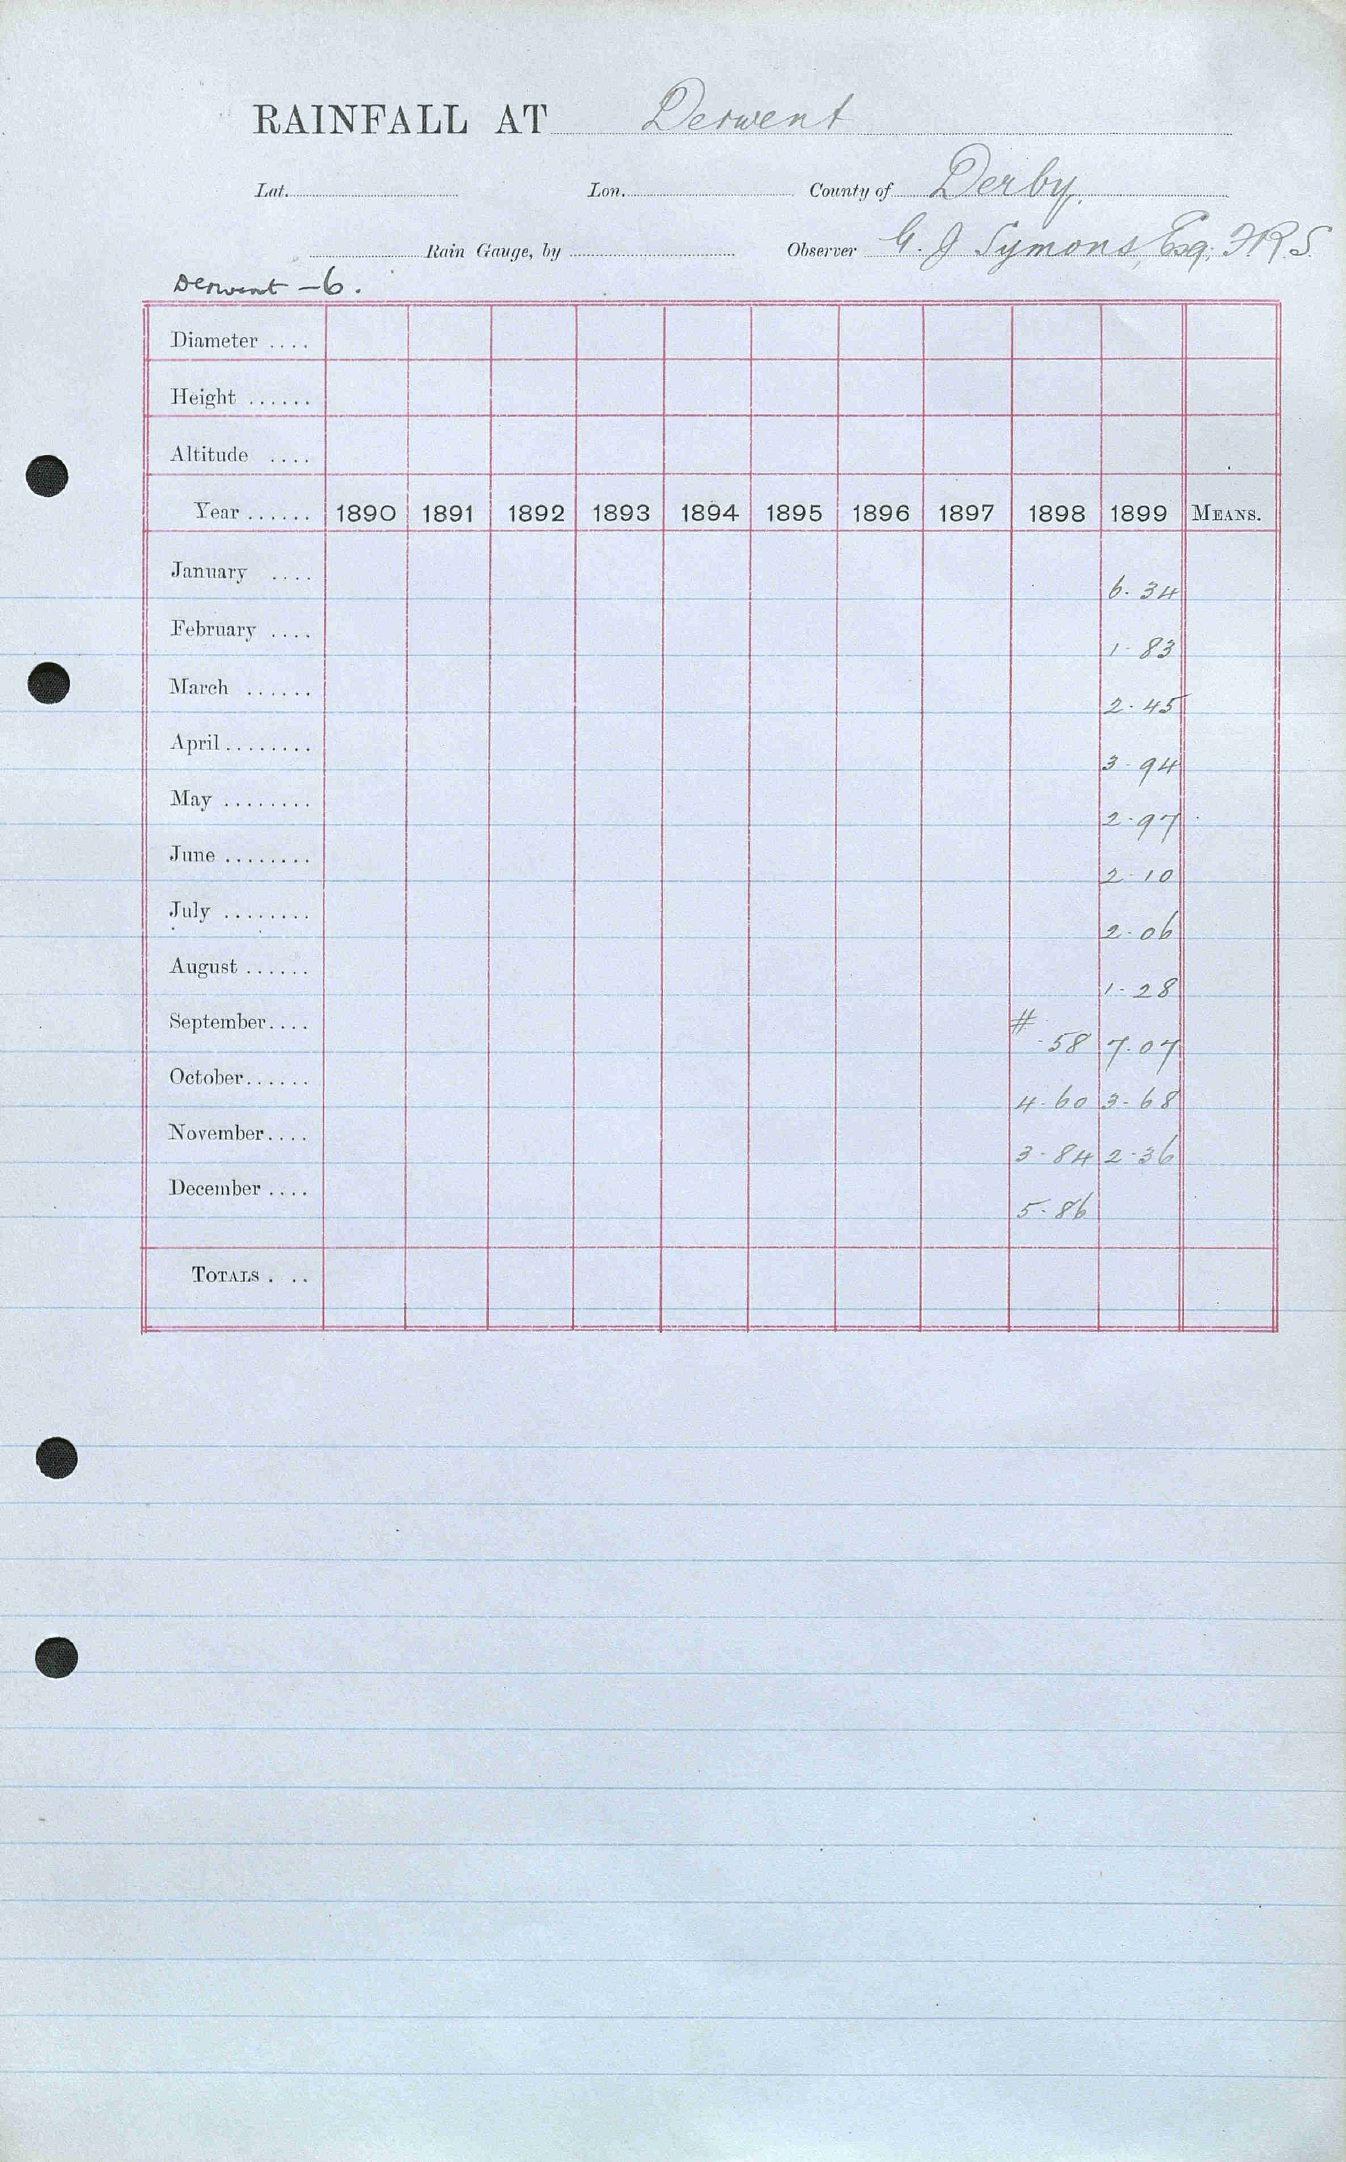 RAINFALL AT Derwent
Lat. Lon. County of Derby.
Rain Gauge, by Observer G. J Symons, Esq, FRS.
Derwent - 6.
Diameter ....
Height ......
Altitude ....
Year ...... 1890 1891 1892 1893 1894 1895 1896 1897 1898 1899 MEANS.
January .... 6. 34
February .... 1. 83
March ...... 2. 45
April ........ 3. 94
May ........ 2. 97
June ........ 2. 10
July ........ 2. 06
August ...... 1. 28
September.... # .58 7. 07
October...... 4. 60 3. 68
November.... 3. 84 2. 36
December .... 5. 86
TOTALS . ..